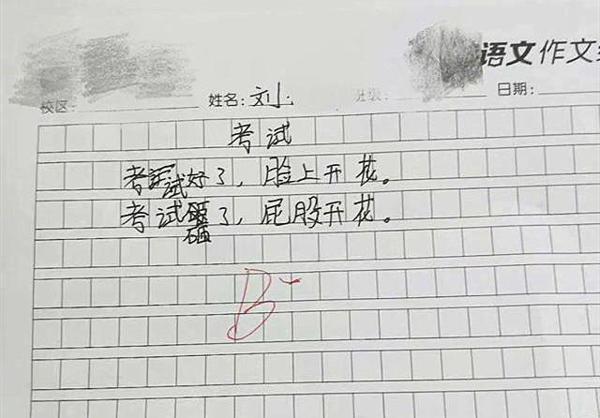 语文作文
校区: 姓名: 刘 班级: 日期:
考试
考试好了，脸上开花。
考试砸了，屁股开花。
B-